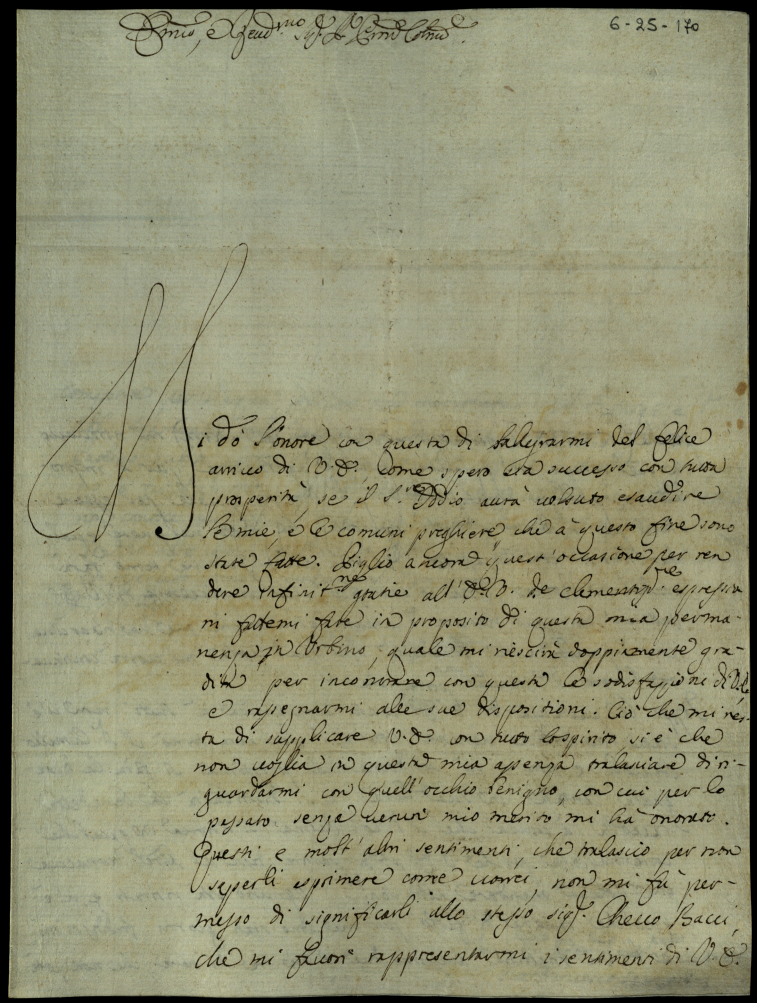 6-25-170
Em.mo, e R.end.mo Sig.r P.re Colmo
Mi dò l'onore con questa di rallegrarmi del felice
arrivo di V.E. come spero sia successo con tutta
prosperità, se il S.re Iddio avrà voluto esaudire
le mie, e le comuni preghiere, che à questo fine sono
state fatte. Piglio ancora quest'occasione per ren
dere infinit.me gratie all'E.V. de clementiss.me espressio
ni fattemi fate in proposito di questa mia perma-
nenza in Urbino, quale mi riescirà doppiamente gra-
dita per incontrare con questa le sodisfazzioni di V.E.
e rassegnarmi alle sue dispositioni. Ciò che mi res-
ta di supplicare V.E. con tutto lo spirito si è che
non voglia in questa mia assenza tralasciare di ri-
guardarmi con quell'occhio benigno, con cui per lo
passato senza verun mio merito mi hà onorato.
Questi e molt'altri sentimenti, che tralascio per non
saperli esprimere come vorrei, non mi fù per-
messo di significarli allo stesso sig.r Checco Bacci,
che mi favorì rappresentarmi i sentimenti di V.E.